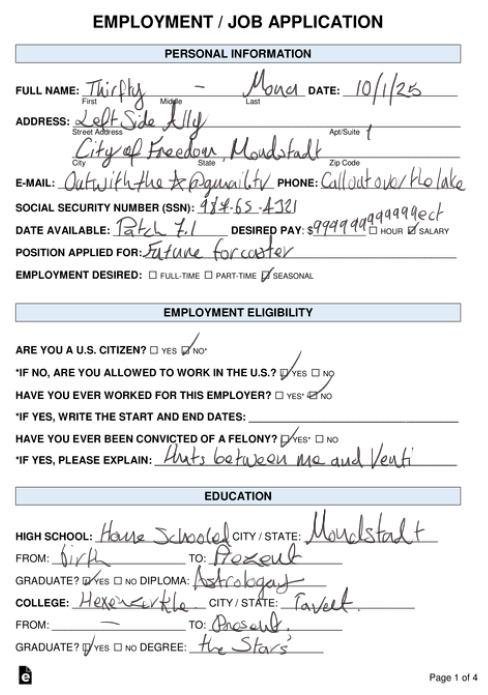 EMPLOYMENT / JOB APPLICATION
PERSONAL INFORMATION
FULL NAME: Thirfty - Mona DATE: 10/1/25
First Middle Last
ADDRESS: Left Side Ally
Street Address Apt/Suite
City of Freedom, Mondstadt
City State Zip Code
E-MAIL: PHONE: Call out over the lake
SOCIAL SECURITY NUMBER (SSN): 987-65-4321
DATE AVAILABLE: Patch 7.1 DESIRED PAY: $ ☐ HOUR ☑ SALARY
POSITION APPLIED FOR: Future forcaster
EMPLOYMENT DESIRED: ☐ FULL-TIME ☐ PART-TIME ☑ SEASONAL
EMPLOYMENT ELIGIBILITY
ARE YOU A U.S. CITIZEN? ☐ YES ☑ NO*
*IF NO, ARE YOU ALLOWED TO WORK IN THE U.S.? ☑ YES ☐ NO
HAVE YOU EVER WORKED FOR THIS EMPLOYER? ☐ YES* ☑ NO
*IF YES, WRITE THE START AND END DATES:
HAVE YOU EVER BEEN CONVICTED OF A FELONY? ☑ YES* ☐ NO
*IF YES, PLEASE EXPLAIN: between me and Venti
EDUCATION
HIGH SCHOOL: Home Schooled CITY / STATE: Mondstadt
FROM: birth TO: Present
GRADUATE? ☑ YES ☐ NO DIPLOMA: Astrology
COLLEGE: CITY / STATE:
FROM: — TO: Present.
GRADUATE? ☑ YES ☐ NO DEGREE: the Stars
Page 1 of 4